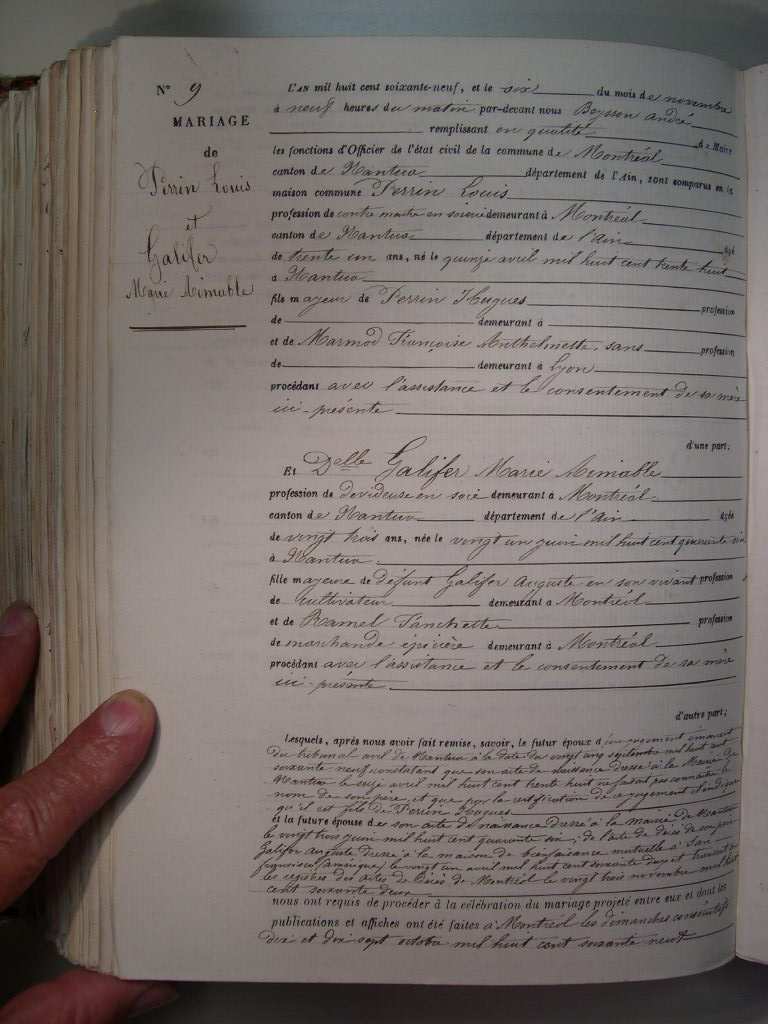 N° 9
MARIAGE
de
Perrin Louis
et
Galifer
Marie Aimable
L'AN mil huit cent soixante-neuf, et le six du mois de novembre
à neuf heures du matin par-devant nous Beysson André
remplissant en qualité de Maire
les fonctions d'Officier de l'état civil de la commune de Montréal
canton de Nantua département de l'Ain, sont comparus en la
maison commune Perrin Louis
profession de contre maître en soierie demeurant à Montréal
canton de Nantua département de l'Ain âgé
de trente un ans, né le quinze avril mil huit cent trente huit
à Nantua
fils majeur de Perrin Hugues profession
de demeurant à
et de Marmod Françoise Anthelmette, sans profession
de demeurant à Lyon
procédant avec l'assistance et le consentement de sa mère
ici-présente
d'une part;
Et Delle Galifer Marie Aimable
profession de dévideuse en soie demeurant à Montréal
canton de Nantua département de l'Ain âgée
de vingt trois ans, née le vingt un juin mil huit cent quarante six
à Nantua
fille majeure de défunt Galifer Auguste en son vivant profession
de cultivateur demeurant à Montréal
et de Ramel Fanchette profession
de marchande épicière demeurant à Montréal
procédant avec l'assistance et le consentement de sa mère
ici-présente
d'autre part;
Lesquels, après nous avoir fait remise, savoir, le futur époux d'un jugement émanant
du tribunal civil de Nantua à la date du vingt cinq septembre mil huit cent
soixante-neuf constatant que son acte de naissance dressé à la Mairie de
Nantua le seize avril mil huit cent trente huit ne faisait pas connaître le
nom de son père, et que par la rectification de ce jugement il indique
qu'il est fils de Perrin Hugues
et la future épouse de son acte de naissance dressé à la mairie de Nantua
le vingt trois juin mil huit cent quarante six; de l'acte de décès de son père
Galifer Auguste dressé à la maison de bienfaisance mutuelle à San
francisco (amérique) le vingt un avril mil huit cent soixante deux et transcrit sur
les registres des actes de Décès de Montréal le vingt trois novembre mil huit
cent soixante deux
nous ont requis de procéder à la célébration du mariage projeté entre eux et dont les
publications et affiches ont été faites à Montréal les dimanches consécutifs
dix et dix sept octobre mil huit cent soixante neuf